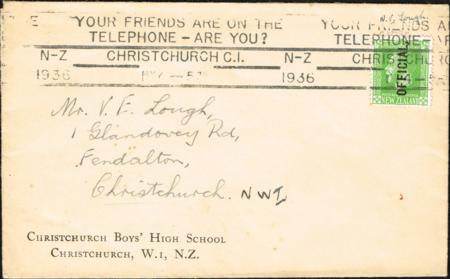 E YOUR FRIENDS ARE ON THE YOUR FRIENDS A
TELEPHONE – ARE YOU? TELEPHONE AR
N-Z CHRISTCHURCH C.I. N-Z CHRISTCHURC
1936 1936
OFFICIAL
NEW ZEALAND
Mr. V. F. Lough,
1 Glandovey Rd,
Fendalton,
Christchurch. NW1
CHRISTCHURCH BOYS' HIGH SCHOOL
CHRISTCHURCH, W.1, N.Z.